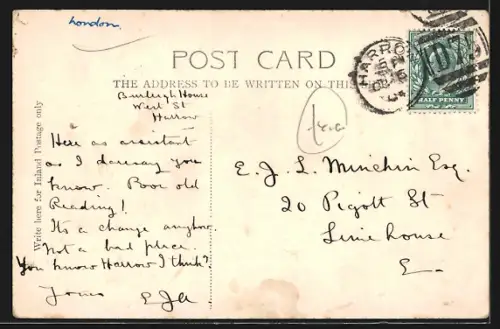 London.
POST CARD
THE ADDRESS TO BE WRITTEN ON THIS
Write here for Inland Postage only
Burleigh House
West St
Harrow
Here as assistant
as I daresay you
know. Poor old
Reading!
Its a change anyhow.
Not a bad place.
You know Harrow I think?
Yours EJA
E. J. L. Minchin Esq.
20 Pigott St
Limehouse
E.
HARRO
HALF PENNY